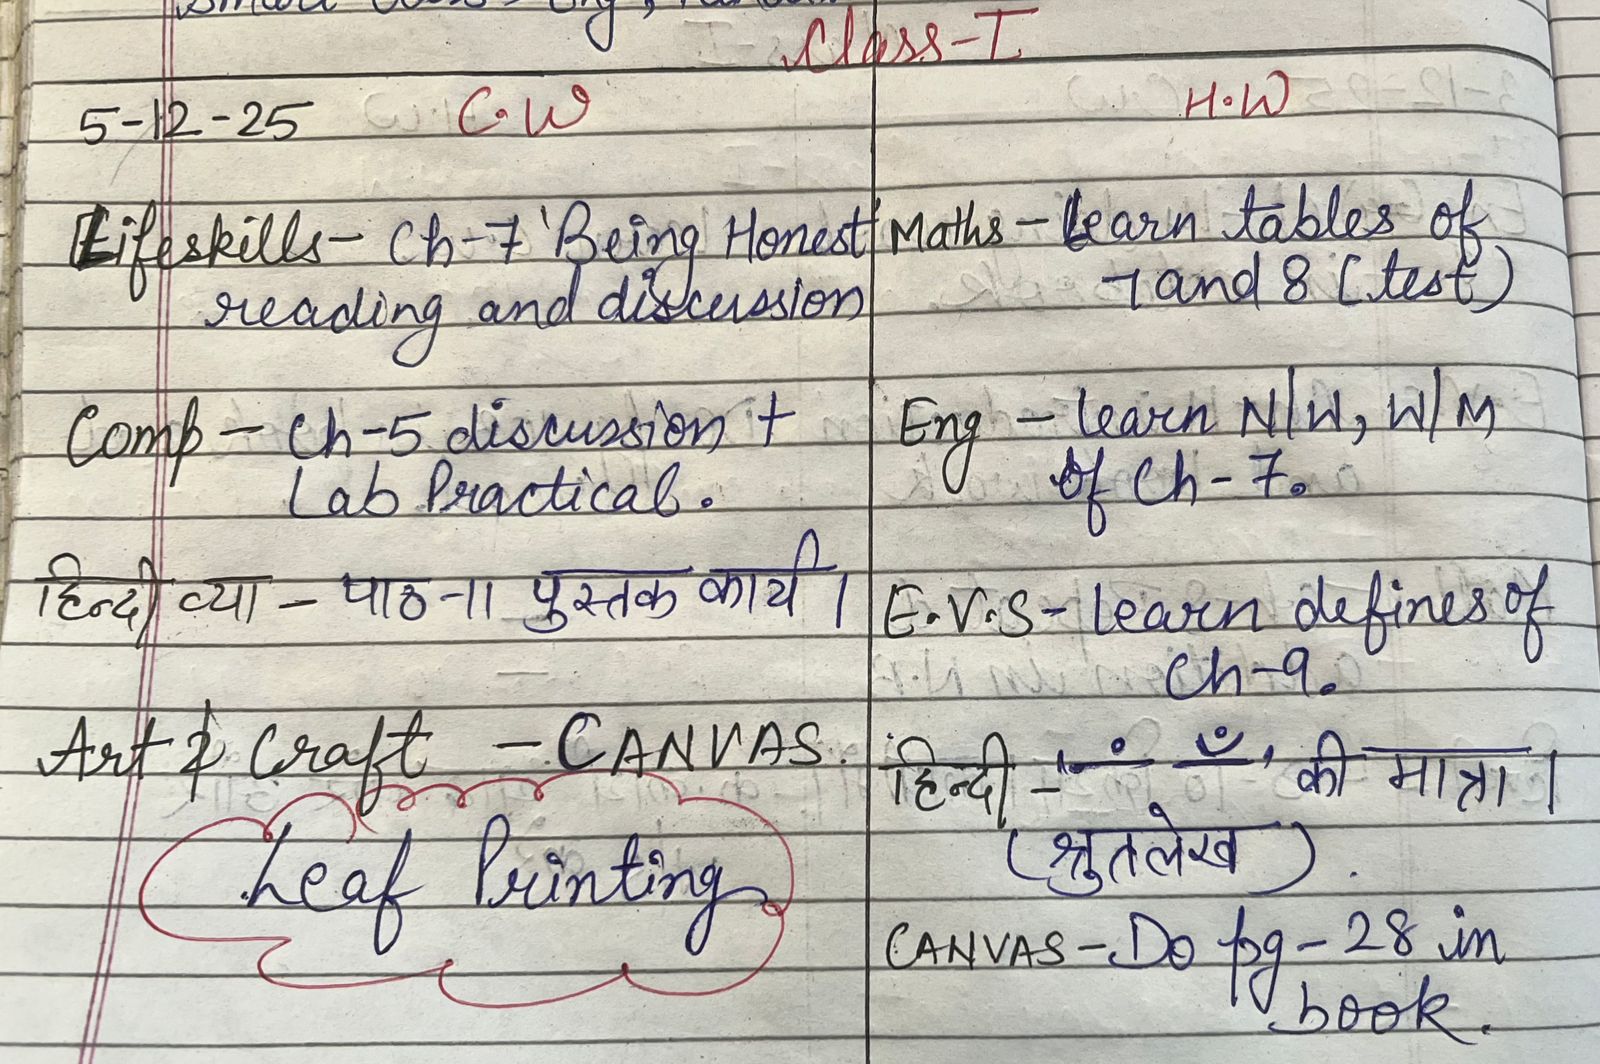 Class-I
5-12-25 C.W
Lifeskills- Ch-7 'Being Honest'
reading and discussion
Comp - Ch-5 discussion +
Lab Practical.
हिन्दी व्या - पाठ-11 पुस्तक कार्य।
Art & Craft - CANVAS.
Leaf Printing
H.W
Maths - Learn tables of
7 and 8 (test)
Eng - Learn N/W, W/M
of Ch-7.
E.V.S - Learn defines of
Ch-9.
हिन्दी - ' ं ँ ' की मात्रा।
(श्रुतलेख).
CANVAS - Do pg-28 in
book.